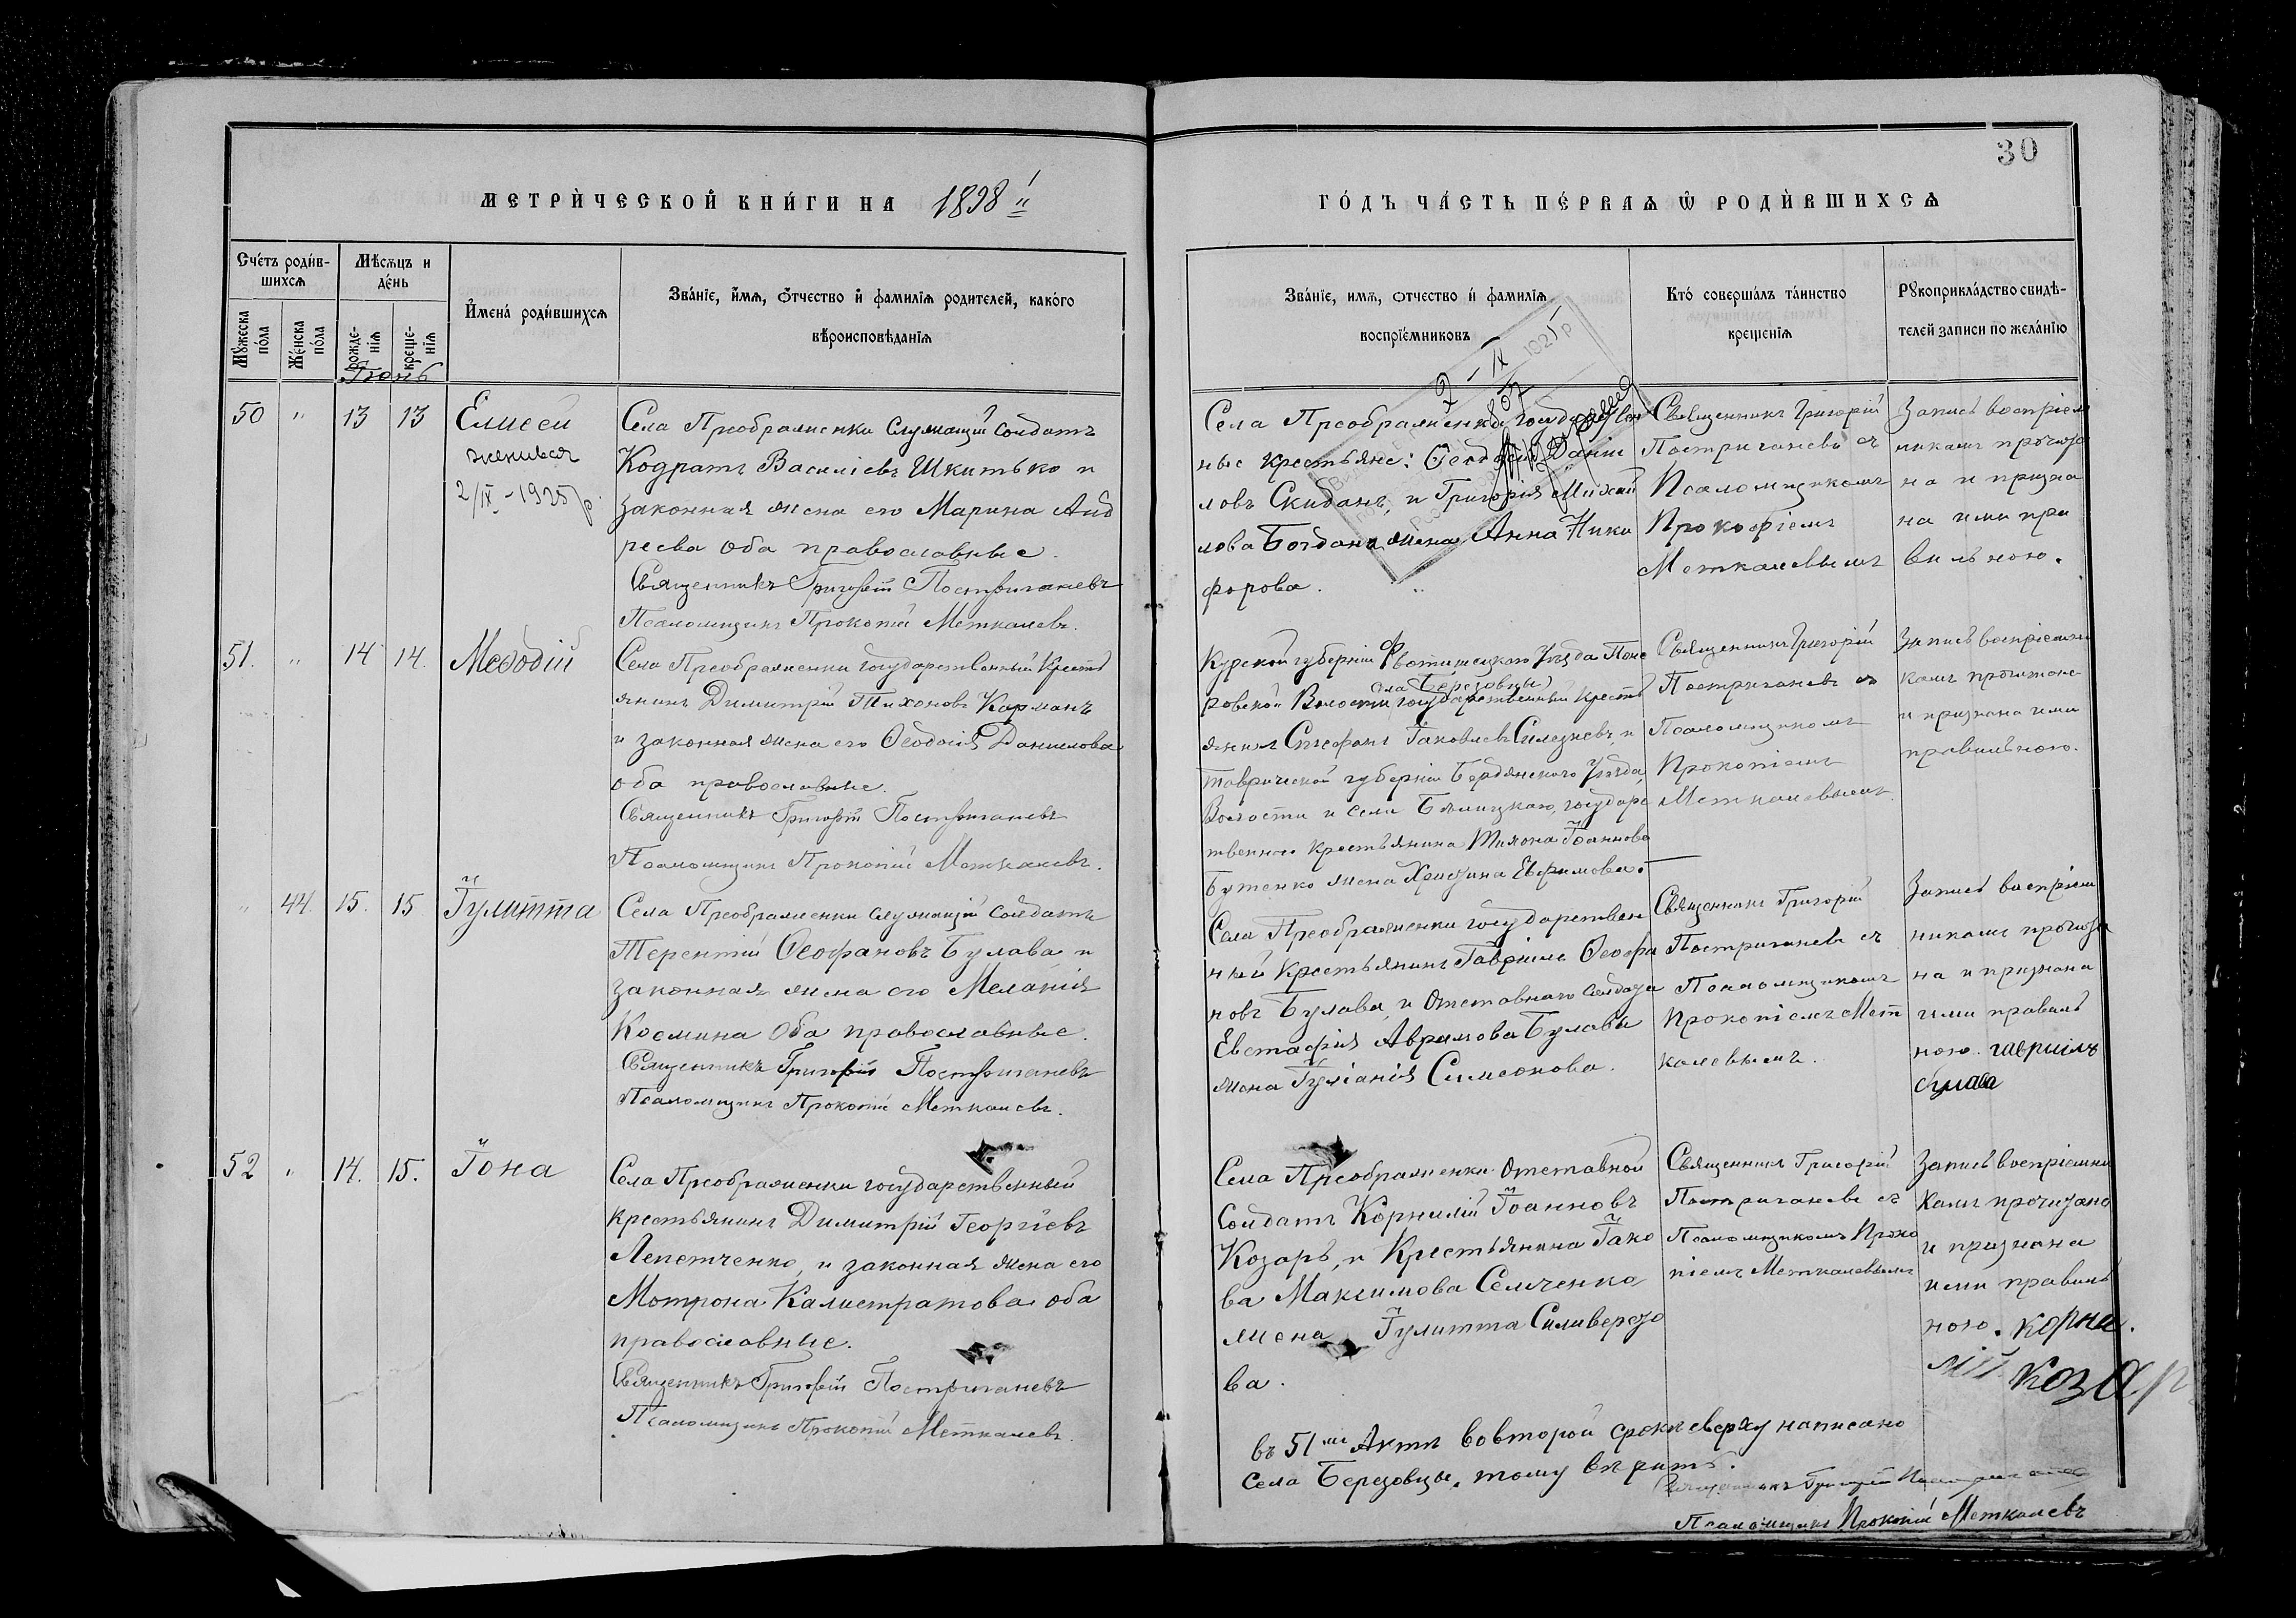 30
МЕТРИ́ЧЕСКОЙ КНИ́ГИ НА 1898 й
ГО́ДЪ ЧА́СТЬ ПЕ́РВАѦ Ѽ РОДИ́ВШИХСѦ
Сче́тъ роди́в-
шихсѧ
Мѣсѧцъ и
де́нь
И҆мена̀ роди́вшихсѧ
Зва́нїе, и҆́мѧ, ѻ҆́тчество и҆ фамилїѧ родителей, како́го
вѣроисповѣданїѧ
Мꙋ́жеска
по́ла
Же́нска
по́ла
рожде-
нїѧ
креще-
нїѧ
Зва́нїе, имѧ, ѻтчество и́ фамилїѧ
воспрїе́мниковъ
Кто́ соверша́лъ та́инство
крещенїѧ
Рꙋкоприкла́дство свидѣ-
телей записи по жела́нїю
Іюнь
50 " 13 13
Елисей
женився
2/IX-1925 р.
Села Преображенки служащій солдатъ
Кодратъ Василіевъ Шкитько и
законная жена его Марина Анд
реева оба православные.
Священникъ Григорій Постриганевъ
Псаломщикъ Прокопій Меткалевъ.
Села Преображенки государствен
ные крестьяне: Ѳеодосій Даніи
ловъ Скиданъ, и Григорія Михай
лова Богдана жена Анна Ники
форова.
Священникъ Григорій
Постриганевъ съ
Псаломщикомъ
Прокофіемъ
Меткалевымъ
Запись воспріем
никамъ прочита
на и призна
на ими пра
вильною.
51. " 14 14.
Меѳодій
Села Преображенки государственный Кресть
янинъ Димитрій Тихоновъ Карманъ
и законная жена его Ѳеодосія Даниилова
оба православные.
Священникъ Григорій Постриганевъ
Псаломщикъ Прокопій Меткалевъ.
Курской губерніи Уѣзда
ровской Волости государственный кресть
села Березовцы
янинъ Стефанъ Іаковлевъ Селезневъ, и
Таврической губерніи Бердянского Уѣзда
Волости и села государс
твенного крестьянина Тихона Іоаннова
Бутенко жена Христина Евфимова.
Священникъ Григорій
Постриганевъ съ
Псаломщикомъ
Прокопіемъ
Меткалевымъ.
Запись воспріемни
камъ прочитана
и признана ими
правильною.
" 44. 15. 15
Іулитта
Села Преображенки служащій солдатъ
Терентій Ѳеофановъ Булава и
законная жена его Меланія
Космина Оба православные.
Священникъ Григорій Постриганевъ
Псаломщикъ Прокопій Меткалевъ.
Села Преображенки государствен
ный крестьянинъ Гавріилъ Ѳеофа
новъ Булава, и отставнаго солдата
Евстафія Аврамова Булавы
жена Іуліанія Симеонова.
Священникъ Григорій
Постриганевъ съ
Псаломщикомъ
Прокопіемъ Мет
калевымъ.
Запись воспріем
никамъ прочита
на и признана
ими правиль
ною. гавриилъ
булава
52 " 14. 15.
Іона
Села Преображенки государственный
крестьянинъ Димитрій Георгіевъ
Лепетченко, и законная жена его
Мотрона Калистратова оба
православные.
Священникъ Григорій Постриганевъ
Псаломщикъ Прокопій Меткалевъ.
Села Преображенки отставной
солдатъ Корнилій Іоанновъ
Козарь, и Крестьянина Іако
ва Максимова Семченко
жена Іулитта Силиверсто
ва.
Священникъ Григорій
Постриганевъ съ
Псаломщикомъ Проко
піемъ Меткалевымъ
Запись воспріемни
камъ прочитана
и признана
ими правиль
ною. корни.
лій козар
въ 51мъ Актѣ во второй строкѣ сверху написано
села Березовцы. тому вѣрить.
Священникъ Григорій Постриганевъ
Псаломщикъ Прокопій Меткалевъ